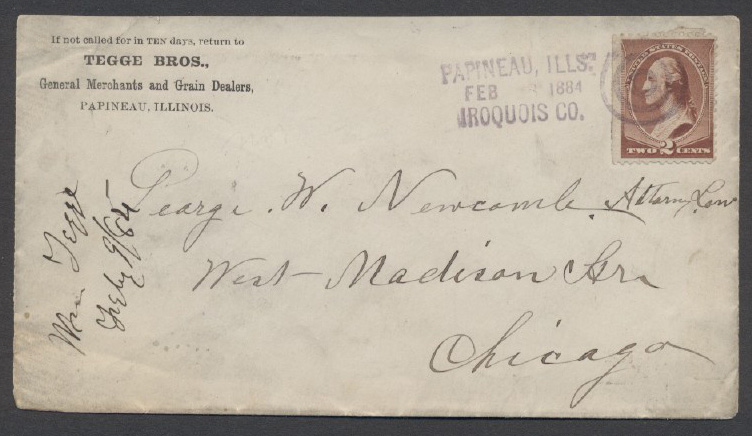 If not called for in TEN days, return to
TEGGE BROS.,
General Merchants and Grain Dealers,
PAPINEAU, ILLINOIS.
PAPINEAU, ILLS.
FEB 1884
IROQUOIS CO.
UNITED STATES POSTAGE
TWO 2 CENTS
George. W. Newcomb. Attorny Law
West Madison Str
Chicago
Wm Tegge
Feby 9/84